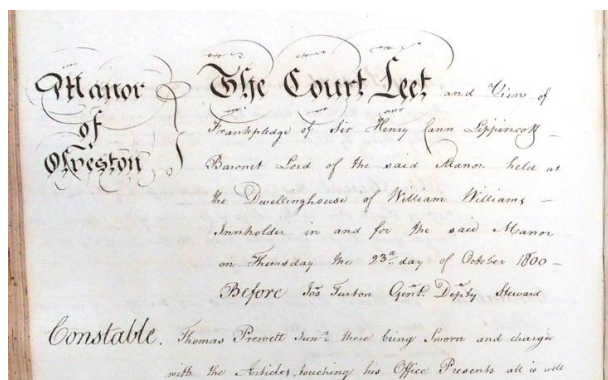 Manor
of
Olveston
The Court Leet and View of
Frankpledge of Sir Henry Cann Lippincott
Baronet Lord of the said Manor held at
the Dwellinghouse of William Williams
Innholder in and for the said Manor
on Thursday the 23d. day of October 1800
Before Jos Turton Gent. Depty Steward
Constable. Thomas Prewett Junr. there being Sworn and charged
with the Articles touching his Office Presents all is well